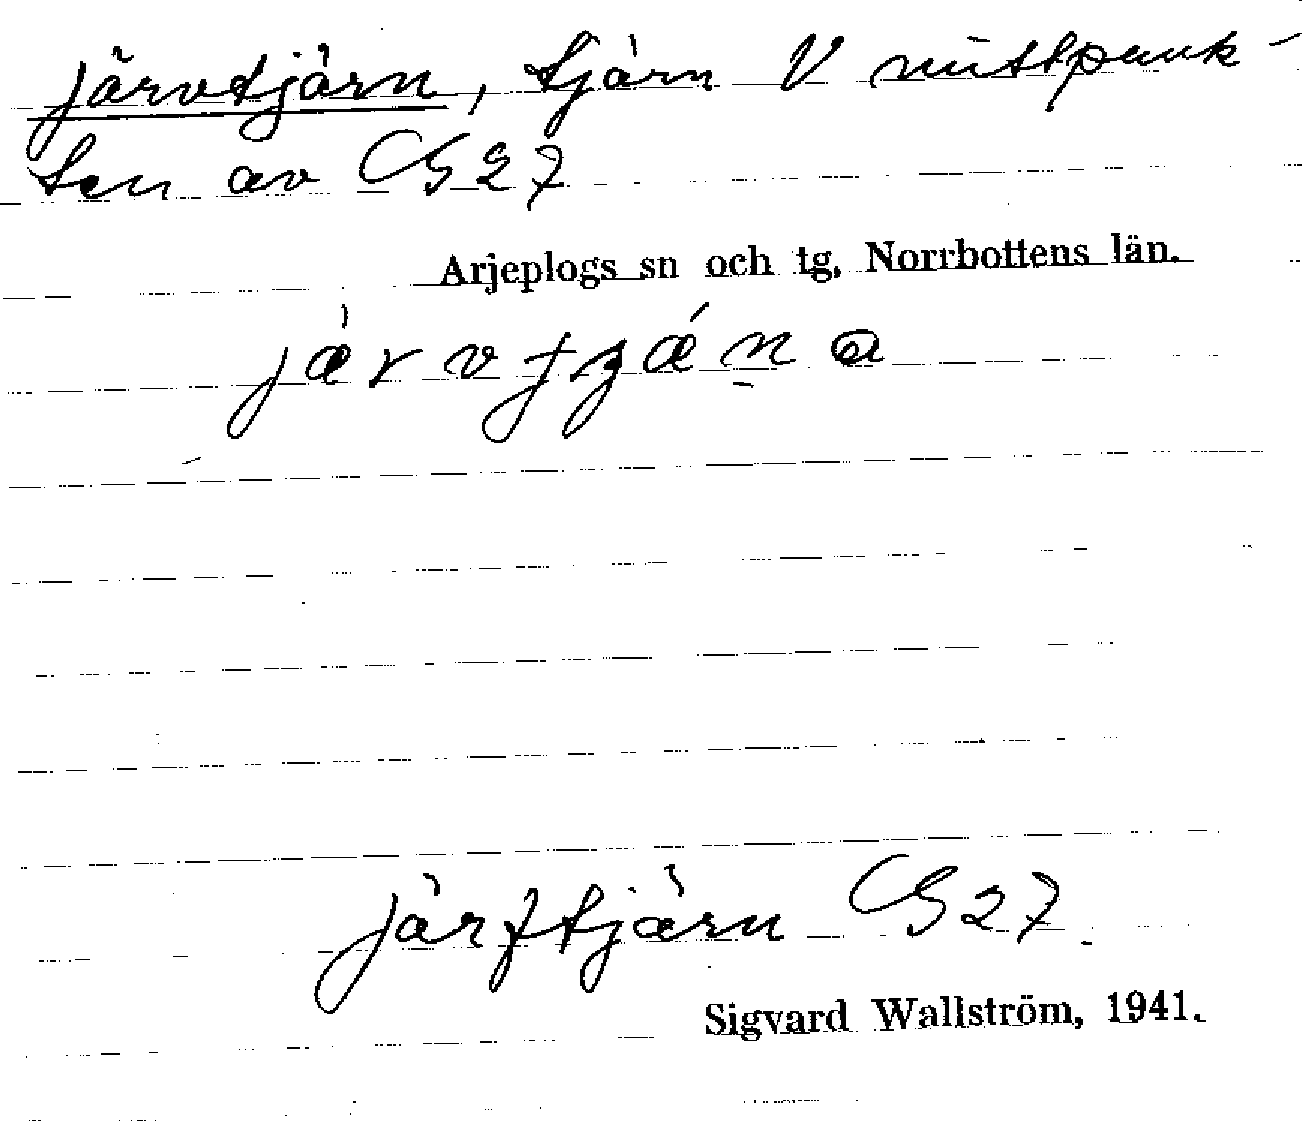 Järvtjärn, tjärn V mittpunk-
ten av CG 27
Arjeplogs sn och tg. Norrbottens län.
Järftjärn CG 27
Sigvard Wallström, 1941.